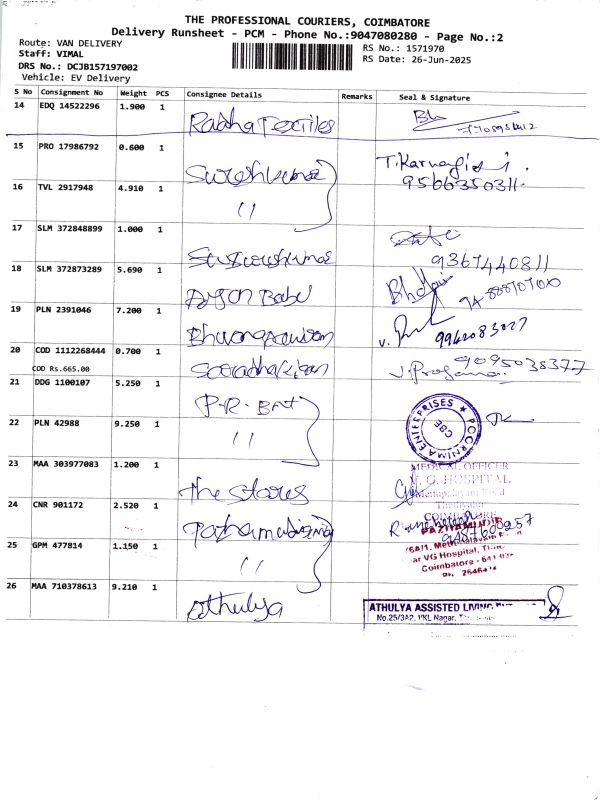 THE PROFESSIONAL COURIERS, COIMBATORE
Delivery Runsheet - PCM - Phone No.:9047080280 - Page No.:2
Route: VAN DELIVERY
RS No.: 1571970
Staff: VIMAL
RS Date: 26-Jun-2025
DRS No.: DCJB157197002
Vehicle: EV Delivery
S No Consignment No Weight PCS Consignee Details Remarks Seal & Signature
14 EDQ 14522296 1.900 1 Radha Textiles
15 PRO 17986792 0.600 1 Sureshkumar
9566350311
16 TVL 2917948 4.910 1 11
17 SLM 372848899 1.000 1
9367440811
18 SLM 372873289 5.690 1 Babu
19 PLN 2391046 7.200 1
9942083027
20 COD 1112268444 0.700 1
9095038377
COD Rs.665.00
21 DDG 1100107 5.250 1 P.R.
POORNIMA ENTERPRISES
CBE
22 PLN 42988 9.250 1 11
23 MAA 303977083 1.200 1 The Stores
MEDICAL OFFICER
V. G. HOSPITAL
24 CNR 901172 2.520 1
COIMBATORE
PAZHAMUDIR
9487600957
25 GPM 477814 1.150 1 11
VG Hospital,
Coimbatore - 641
26 MAA 710378613 9.210 1 Athulya
ATHULYA ASSISTED LIVING
No.25/3A2, VKL Nagar,